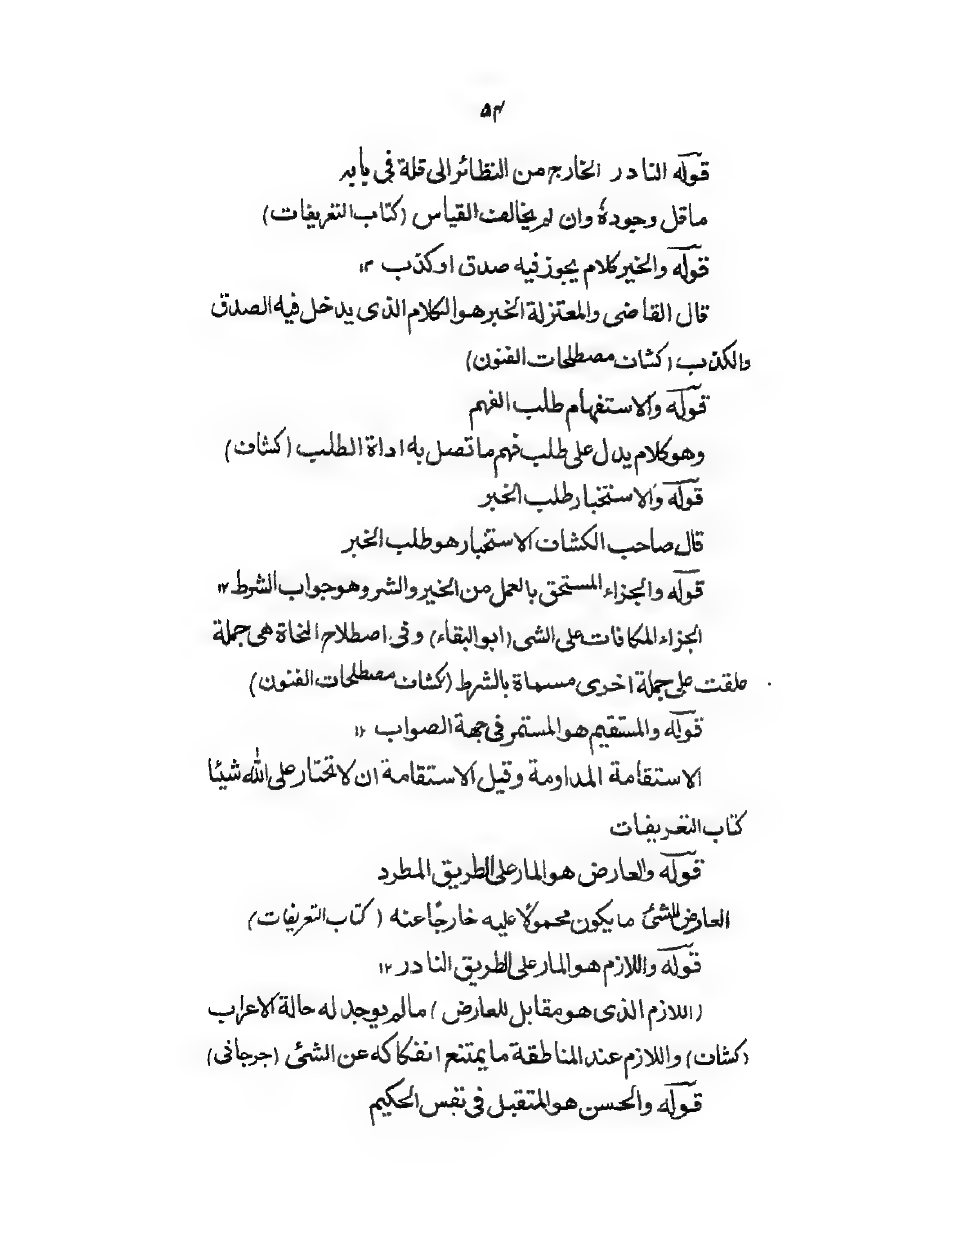 ۵۴
قولہ النادر الخارج من النظائر الی قلة فی بابہ
ماقل وجودہٗ وان لم یخالف القیاس (کتاب التعریفات)
قولہ والخبر کلام یجوز فیه صدق او کذب ۱۲
قال القاضی والمعتزلة الخبر هو الکلام الذی یدخل فیه الصدق
والکذب (کشاف مصطلحات الفنون)
قولہ والاستفهام طلب الفهم
وهو کلام یدل علی طلب فهم ما تصل به اداة الطلب (کشاف)
قولہ والاستخبار طلب الخبر
قال صاحب الکشاف الاستخبار هو طلب الخبر
قولہ والجزاء المستحق بالعمل من الخیر والشر وهو جواب الشرط ۱۲
الجزاء المکافات علی الشی (ابو البقاء) وفی اصطلاح النحاة هی جملة
علقت علی جملة اخری مسماة بالشرط (کشاف مصطلحات الفنون)
قولہ والمستقیم هو المستمر فی جهة الصواب ۱۲
الاستقامة المداومة وقیل الاستقامة ان لا تختار علی الله شیئا
کتاب التعریفات
قولہ والعارض هو المار علی الطریق المطرد
العارض للشئ ما یکون محمولًا علیه خارجًا عنه (کتاب التعریفات)
قولہ واللازم هو المار علی الطریق النادر ۱۲
(اللازم الذی هو مقابل للعارض) مالم یوجد له حالة الاعراب
(کشاف) واللازم عند المناطقة ما یمتنع انفکاکه عن الشئ (جرجانی)
قولہ والحسن هو المتقبل فی نفس الحکیم